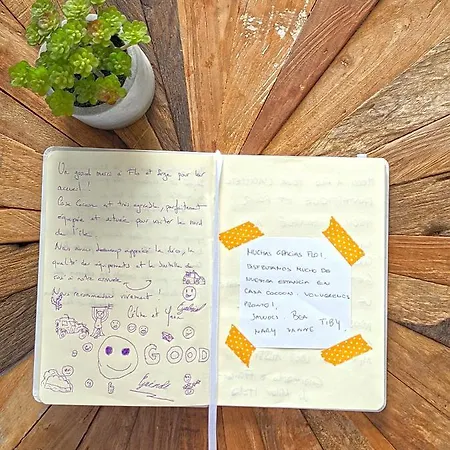 Un grand merci à Flo et Jorge pour leur
accueil !
Casa Cocoon est très agréable, parfaitement
équipée et située pour visiter le nord
de l'île.
Nous avons beaucoup apprécié la déco, la
qualité des équipements et
Nous recommandons vivement !
Céline et Yann
GOOD
MUCHAS GRACIAS FLO!
DISFRUTAMOS MUCHO DE
NUESTRA ESTANCIA EN
CASA COCOON, VOLVEREMOS
PRONTO!,
SALUDOS BEA TIBY
MARY